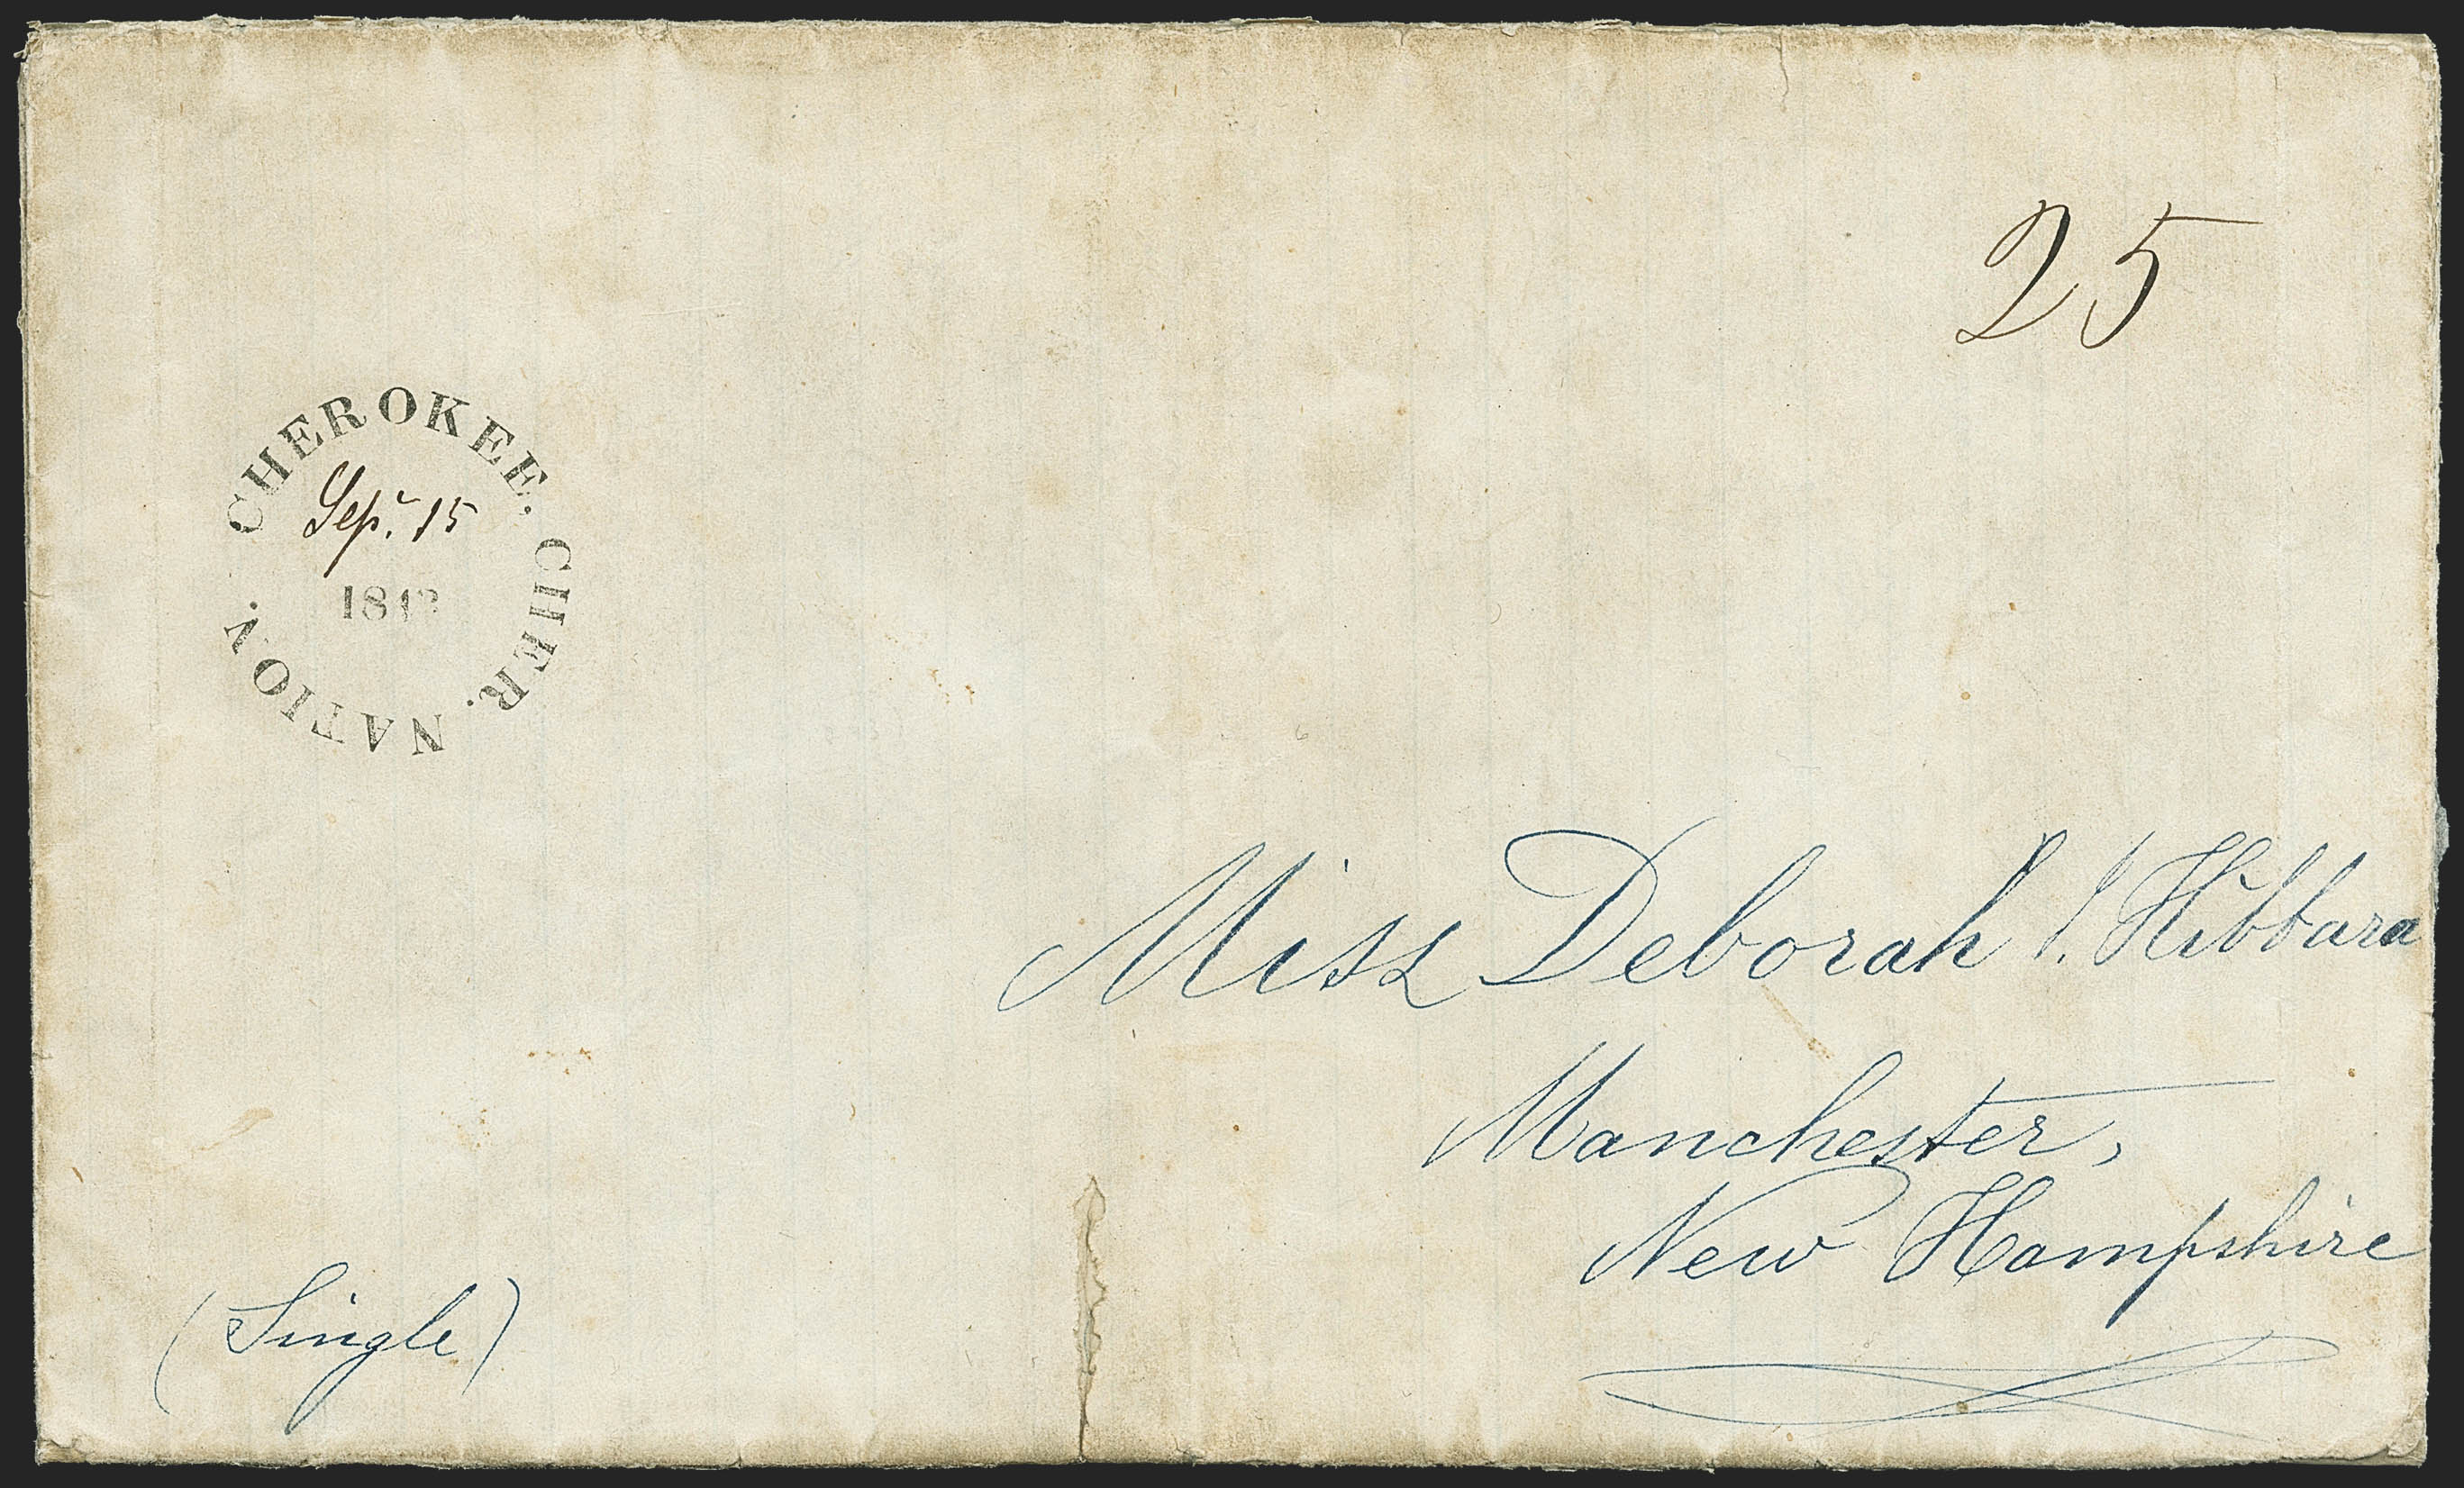 25
CHEROKEE. CHER. NATION.
Sepr. 15
Miss Deborah Hibbard
Manchester,
New Hampshire
(Single)